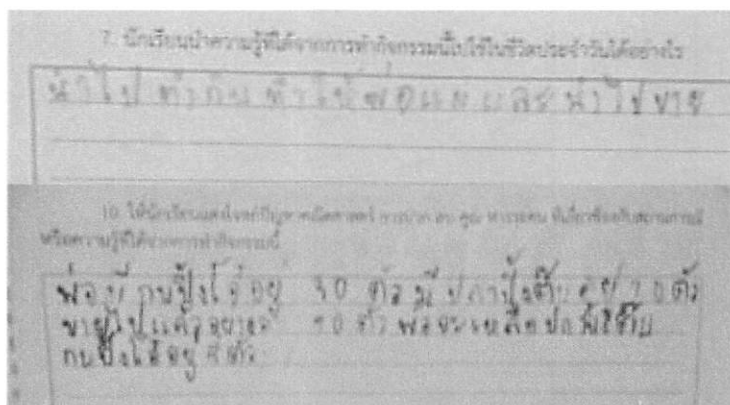 7. นักเรียนนำความรู้ที่ได้จากการทำกิจกรรมนี้ไปใช้ในชีวิตประจำวันได้อย่างไร
นำไป ทำกิน ทำให้พ่อแม่ และ นำไป ขาย
10. ให้นักเรียนแต่งโจทย์ปัญหาคณิตศาสตร์ การบวก ลบ คูณ หารระคน ที่เกี่ยวข้องกับสถานการณ์
หรือความรู้ที่ได้จากการทำกิจกรรมนี้
พ่อมี กบปิ้ง อยู่ 30 ตัว มี ปลาปิ้ง อยู่ 20 ตัว
ขายไปแล้ว 40 ตัว พ่อจะเหลือ
กบปิ้ง อยู่ ตัว